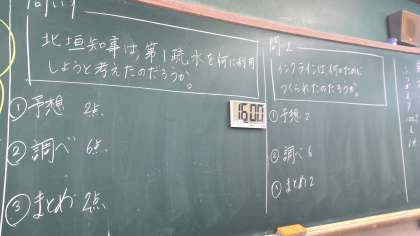 問い1
北垣知事は、第1疏水を何に利用
しようと考えたのだろうか。
①予想 2点
②調べ 6点
③まとめ 2点
16:00
問2
インクラインは、何のために
つくられたのだろうか。
①予想 2
②調べ 6
③まとめ 2